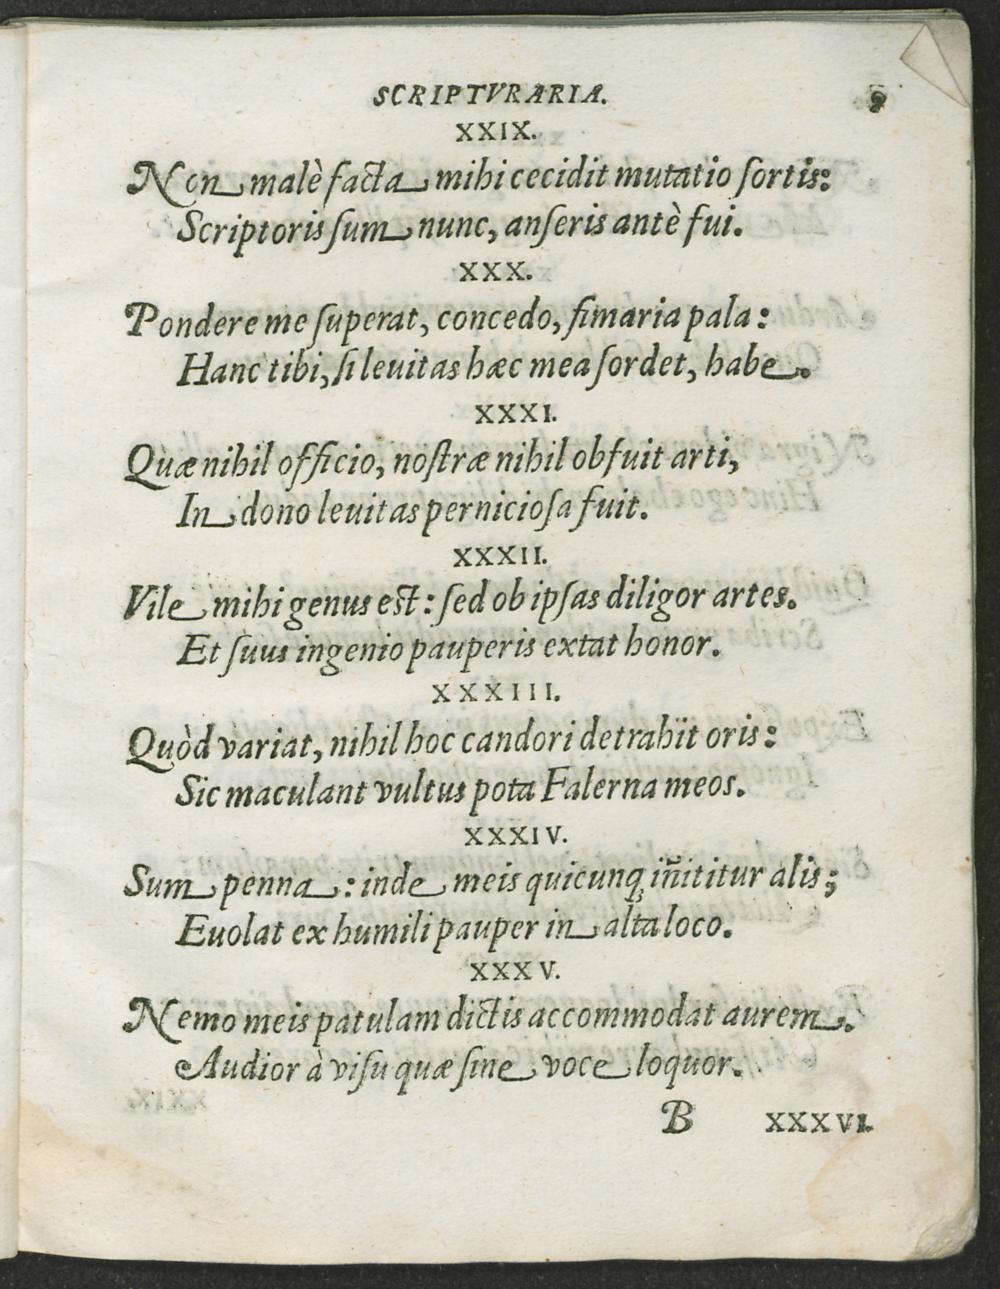 SCRIPTVRARIA. 9
XXIX.
Non malè facta mihi cecidit mutatio sortis:
Scriptoris sum nunc, anseris antè fui.
XXX.
Pondere me superat, concedo, fimaria pala:
Hanc tibi, si leuitas hæc mea sordet, habe.
XXXI.
Quæ nihil officio, nostræ nihil obfuit arti,
In dono leuitas perniciosa fuit.
XXXII.
Vile mihi genus est: sed ob ipsas diligor artes.
Et suus ingenio pauperis extat honor.
XXXIII.
Quòd variat, nihil hoc candori detrahit oris:
Sic maculant vultus pota Falerna meos.
XXXIV.
Sum penna: inde meis quicunq; iñititur alis;
Euolat ex humili pauper in alta loco.
XXXV.
Nemo meis patulam dictis accommodat aurem.
Audior à visu quæ sine voce loquor.
B XXXVI.